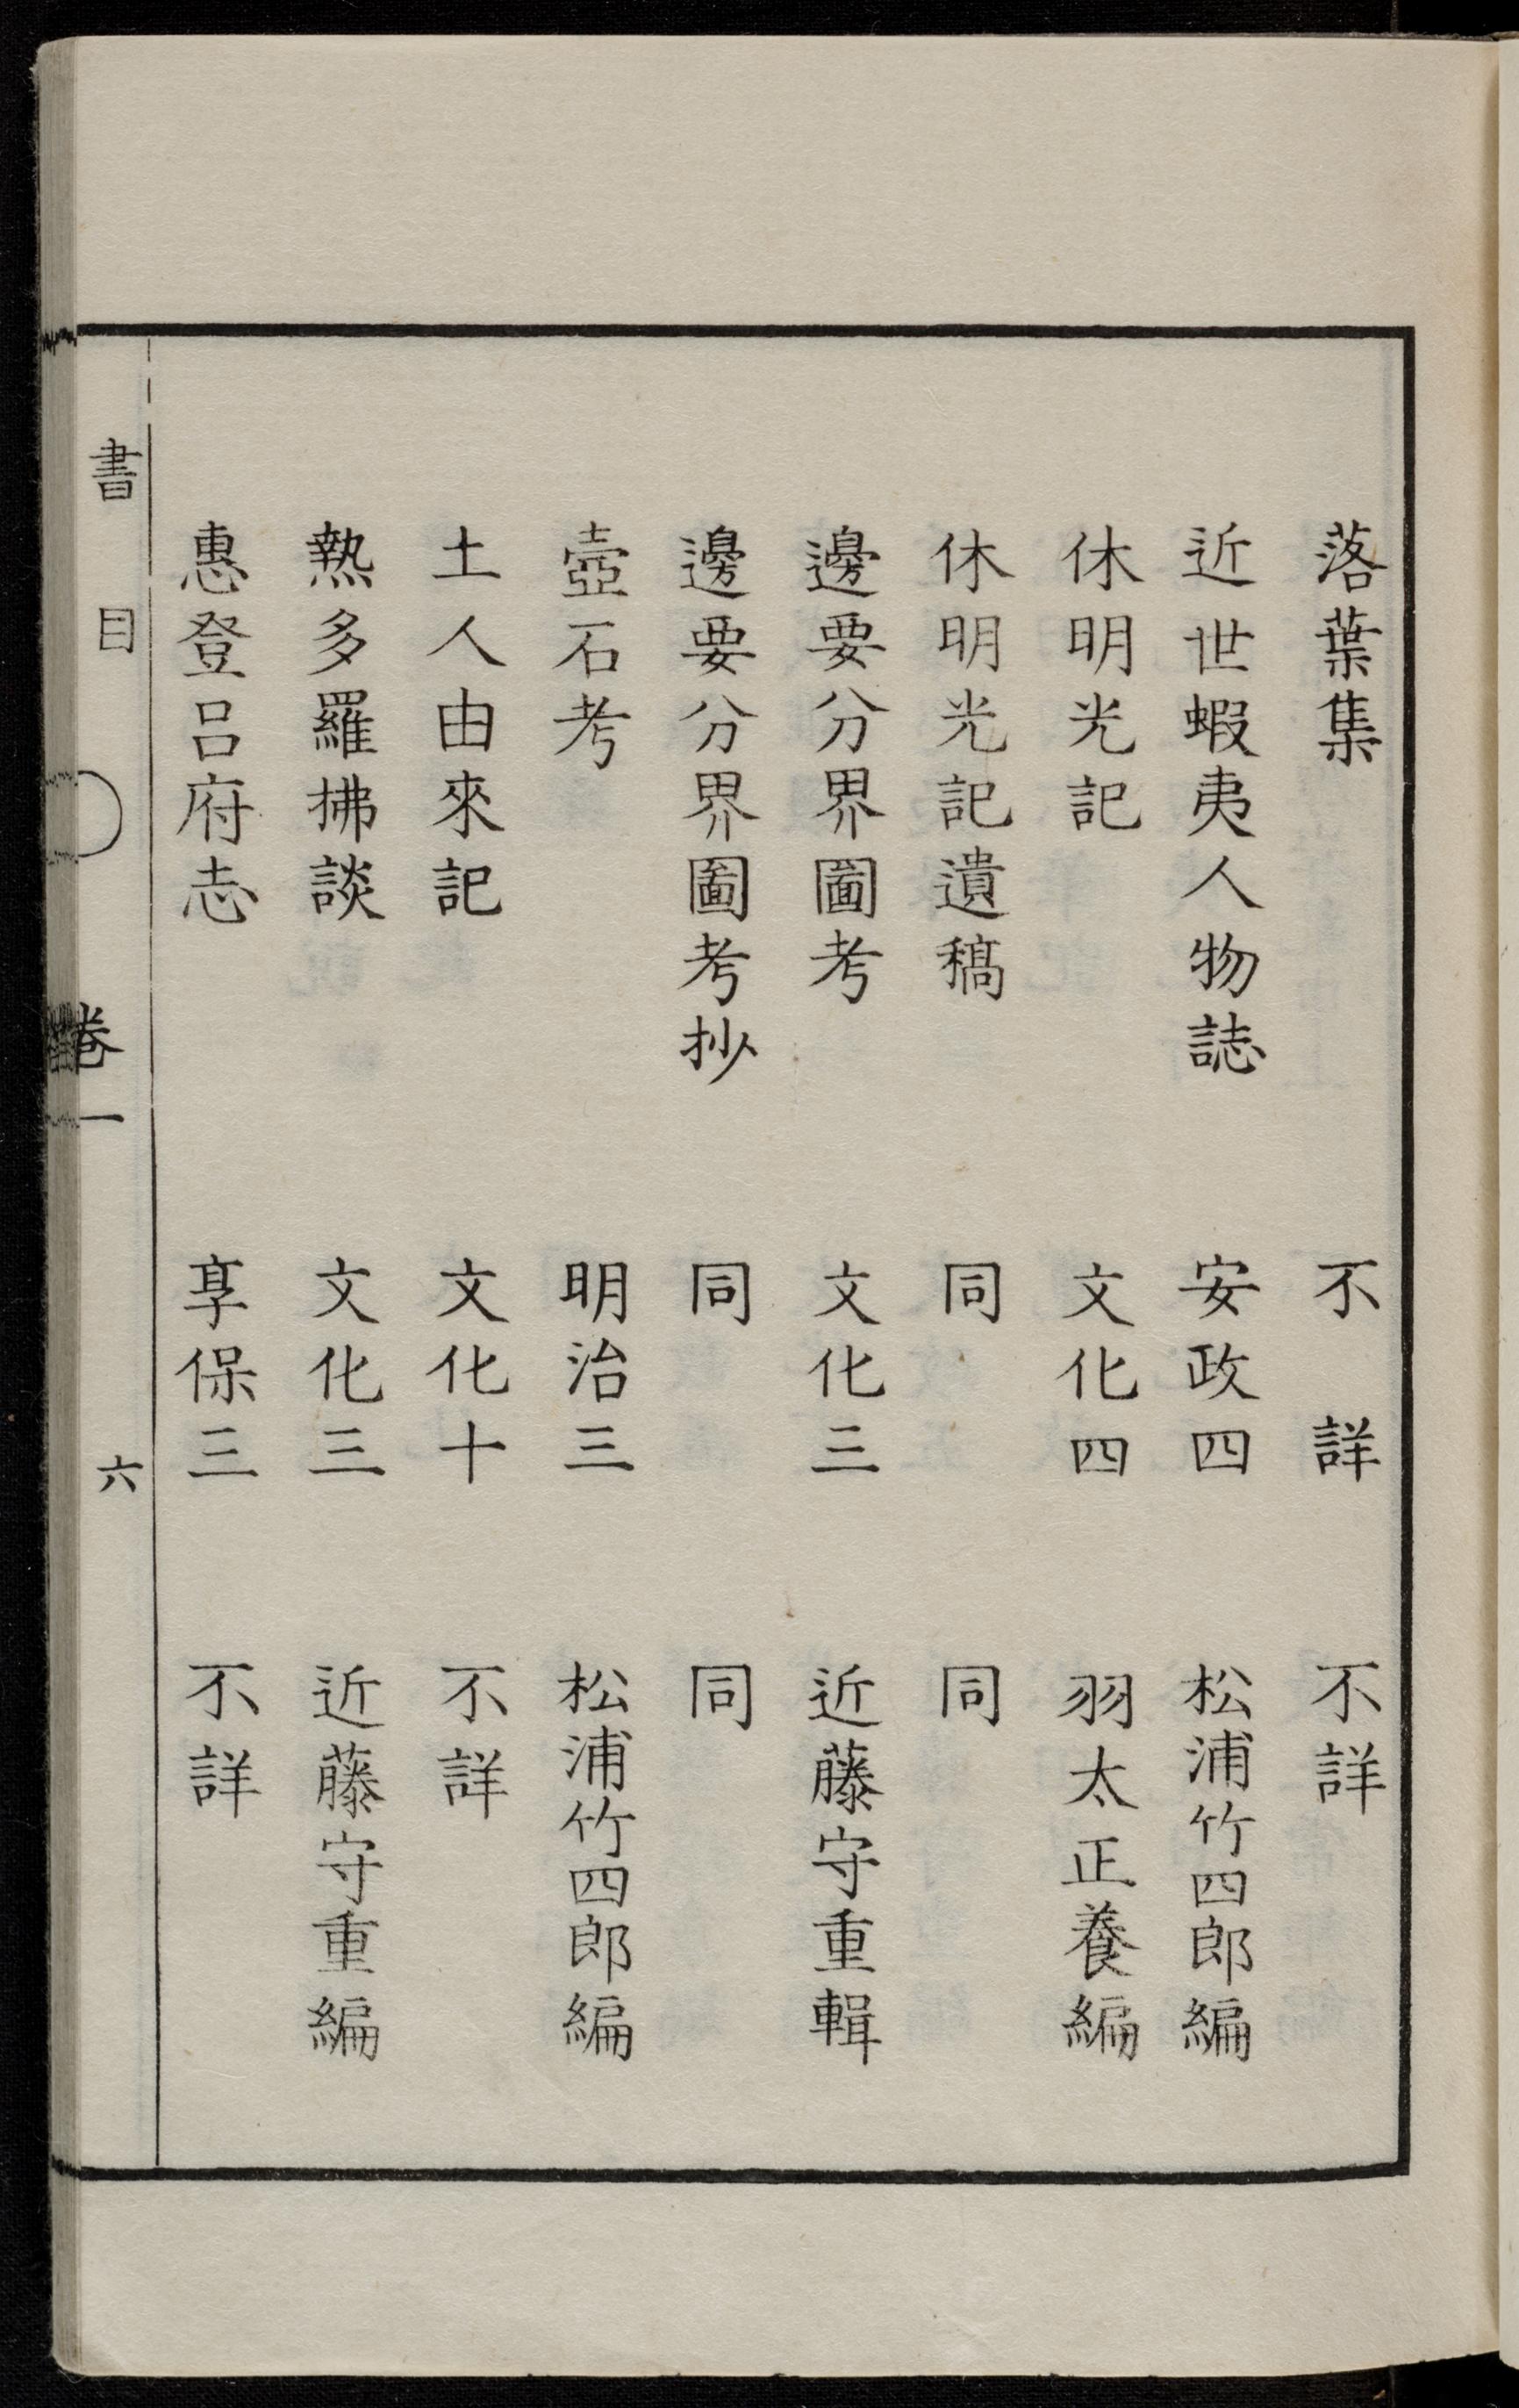 落葉集 不詳 不詳
近世蝦夷人物誌 安政四 松浦竹四郎編
休明光記 文化四 羽太正養編
休明光記遺稿 同 同
邊要分界圖考 文化三 近藤守重輯
邊要分界圖考抄 同 同
壺石考 明治三 松浦竹四郎編
土人由來記 文化十 不詳
熱多羅拂談 文化三 近藤守重編
惠登呂府志 享保三 不詳
書目 卷一 六